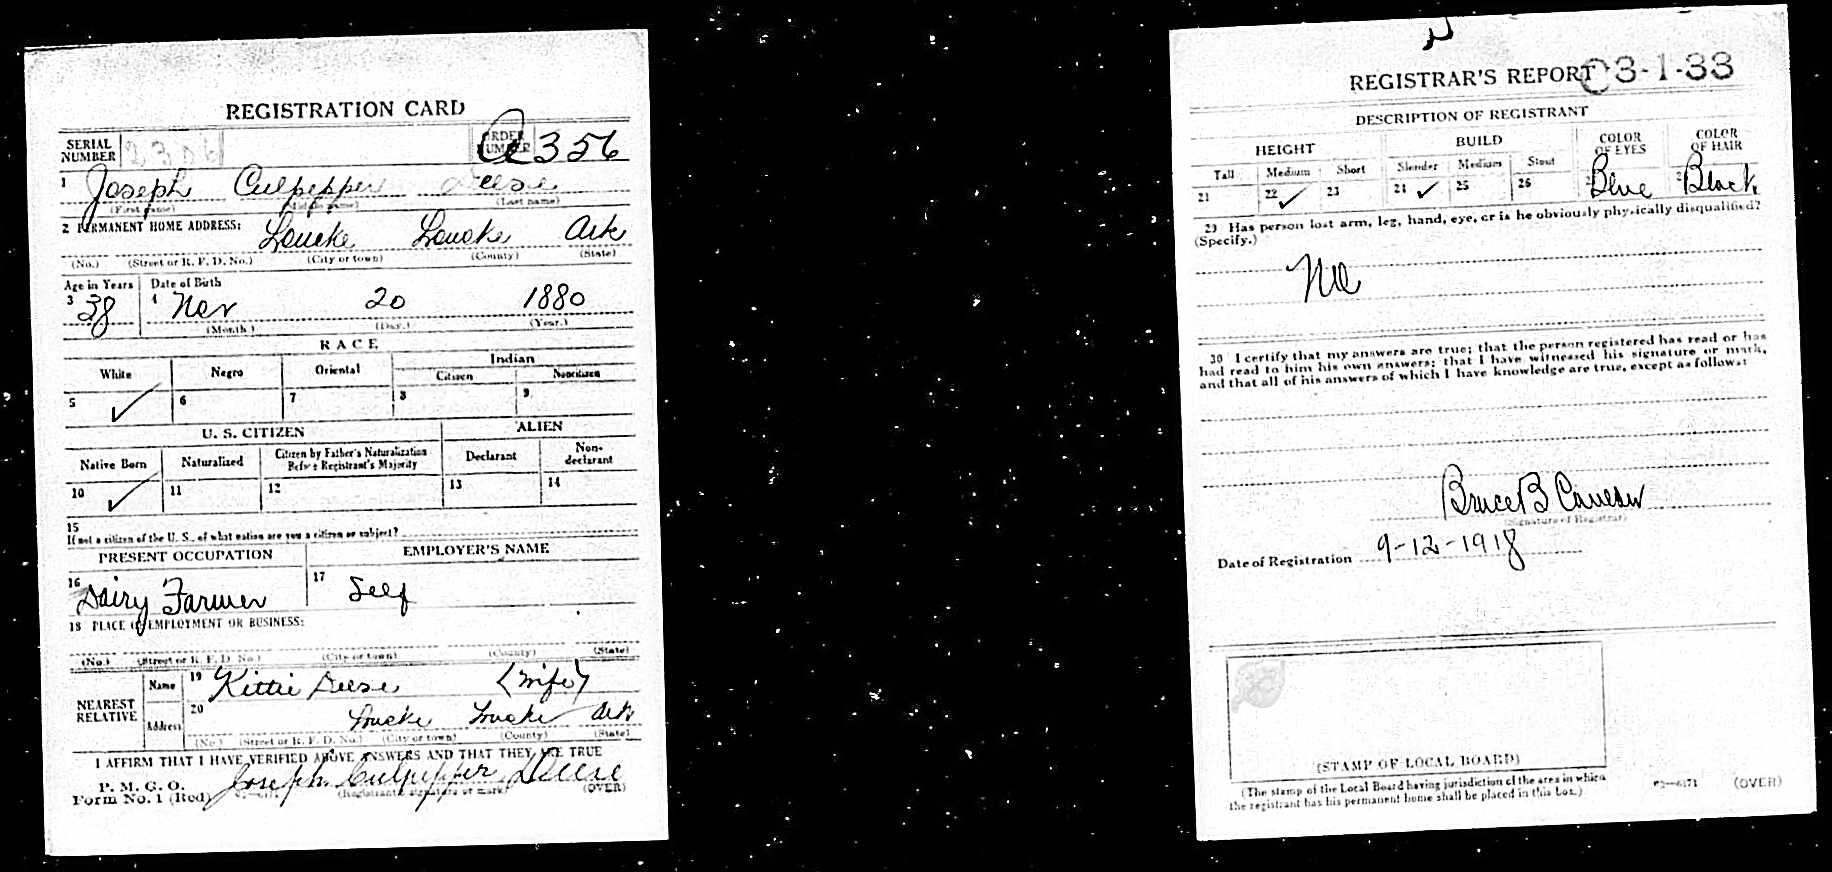 REGISTRATION CARD
SERIAL NUMBER
ORDER NUMBER A 356
1 Joseph Culpepper Deese
(First name) (Middle name) (Last name)
2 PERMANENT HOME ADDRESS: Lonoke Lonoke Ark
(No.) (Street or R. F. D. No.) (City or town) (County) (State)
Age in Years Date of Birth
3 38 4 Nov 20 1880
(Month.) (Day.) (Year.)
RACE
White Negro Oriental Indian
Citizen Noncitizen
5 ✓ 6 7 8 9
U. S. CITIZEN ALIEN
Native Born Naturalized Citizen by Father's Naturalization Before Registrant's Majority Declarant Non-declarant
10 ✓ 11 12 13 14
15
If not a citizen of the U. S., of what nation are you a citizen or subject?
PRESENT OCCUPATION EMPLOYER'S NAME
16 Dairy Farmer 17 Self
18 PLACE OF EMPLOYMENT OR BUSINESS:
(No.) (Street or R. F. D. No.) (City or town) (County) (State)
NEAREST RELATIVE Name 19 Kittie Deese (Wife)
Address 20 Lonoke Lonoke Ark
(No.) (Street or R. F. D. No.) (City or town) (County) (State)
I AFFIRM THAT I HAVE VERIFIED ABOVE ANSWERS AND THAT THEY ARE TRUE
P. M. G. O.
Form No. 1 (Red) Joseph Culpepper Deese
(Registrant's signature or mark) (OVER)
REGISTRAR'S REPORT 3-1-33
DESCRIPTION OF REGISTRANT
HEIGHT BUILD COLOR OF EYES COLOR OF HAIR
Tall Medium Short Slender Medium Stout
21 22 ✓ 23 24 ✓ 25 26 Blue Black
29 Has person lost arm, leg, hand, eye, or is he obviously physically disqualified?
(Specify.)
No
30 I certify that my answers are true; that the person registered has read or has
had read to him his own answers; that I have witnessed his signature or mark,
and that all of his answers of which I have knowledge are true, except as follows:
Bruce B
(Signature of Registrar)
Date of Registration 9-12-1918
(STAMP OF LOCAL BOARD)
(The stamp of the Local Board having jurisdiction of the area in which
the registrant has his permanent home shall be placed in this box.)
(OVER)